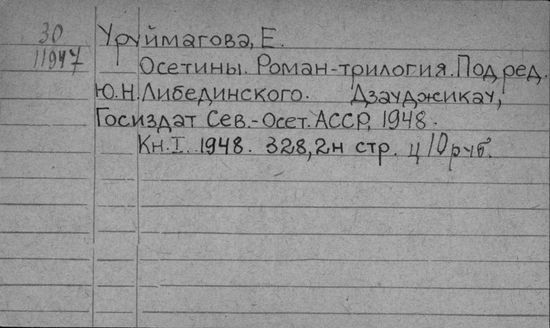 30
11947
Уруймагова, Е.
Осетины. Роман-трилогия. Под ред.
Ю.Н.Либединского. Дзауджикау,
Госиздат Сев.-Осет. АССР, 1948.
Кн. I. 1948. 328, 2н стр. ц 10 руб.